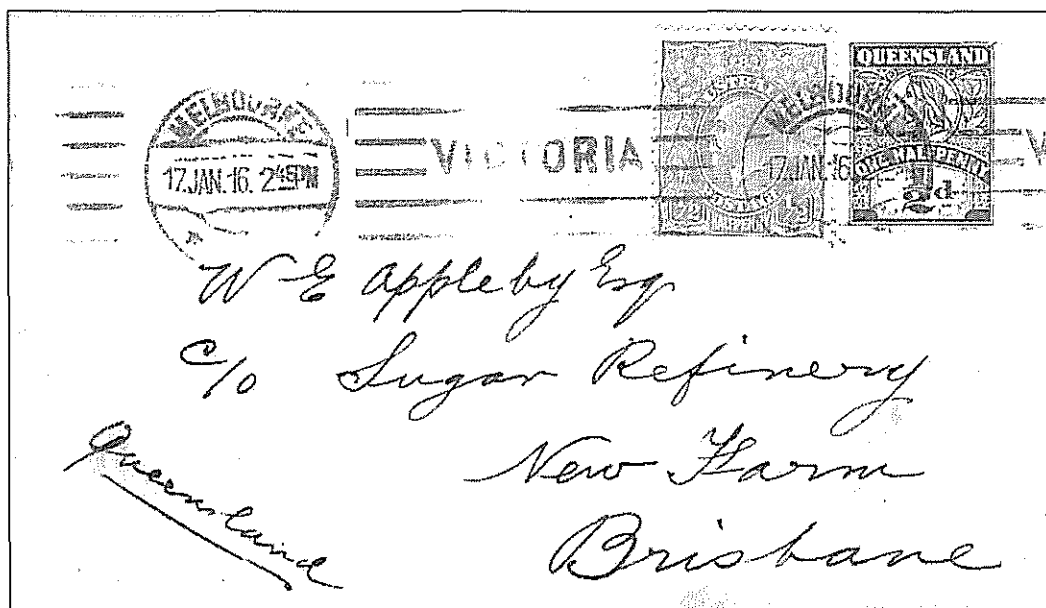 MELBOURNE
17.JAN.16. 2 45PM
VICTORIA
MELBOURNE
17.JAN.16
V
AUSTRALIA
POSTAGE
½d ½d
QUEENSLAND
ONE HALF PENNY
½d
W E Appleby Esq
c/o Sugar Refinery
New Farm
Brisbane
Queensland